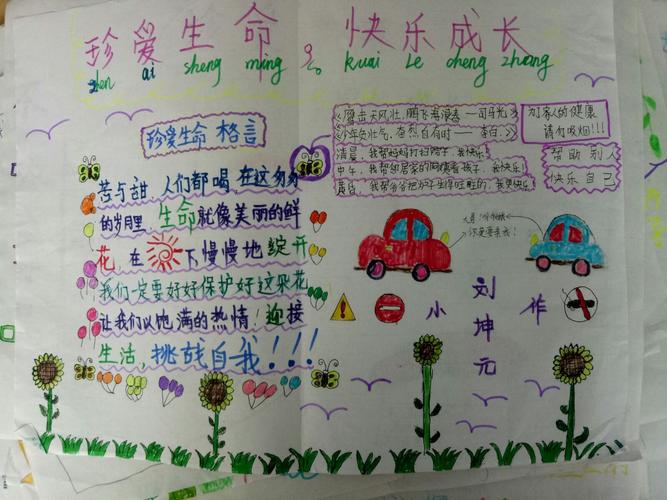 珍爱生命，快乐成长
zhen ai sheng ming kuai Le cheng zhang
珍爱生命 格言
苦与甜,人们都喝 在这匆匆
的岁月里.生命就像美丽的鲜
花,在下慢慢地绽开
我们一定要好好保护好这朵花
让我们以饱满的热情!迎接
生活,挑战自我!!!
《鹰击天风壮,鹏飞海浪春 —司马光》
《少年负壮气,奋烈自有时 —李白.》
清晨,我帮妈妈打扫院子,我快乐
中午,我帮邻居家的阿姨看孩子,我快乐
黄昏,我帮爷爷把炉子生得旺旺的,我更快乐
为家人的健康
请勿吸烟!!!
帮助别人
快乐自己
小 刘坤元 作